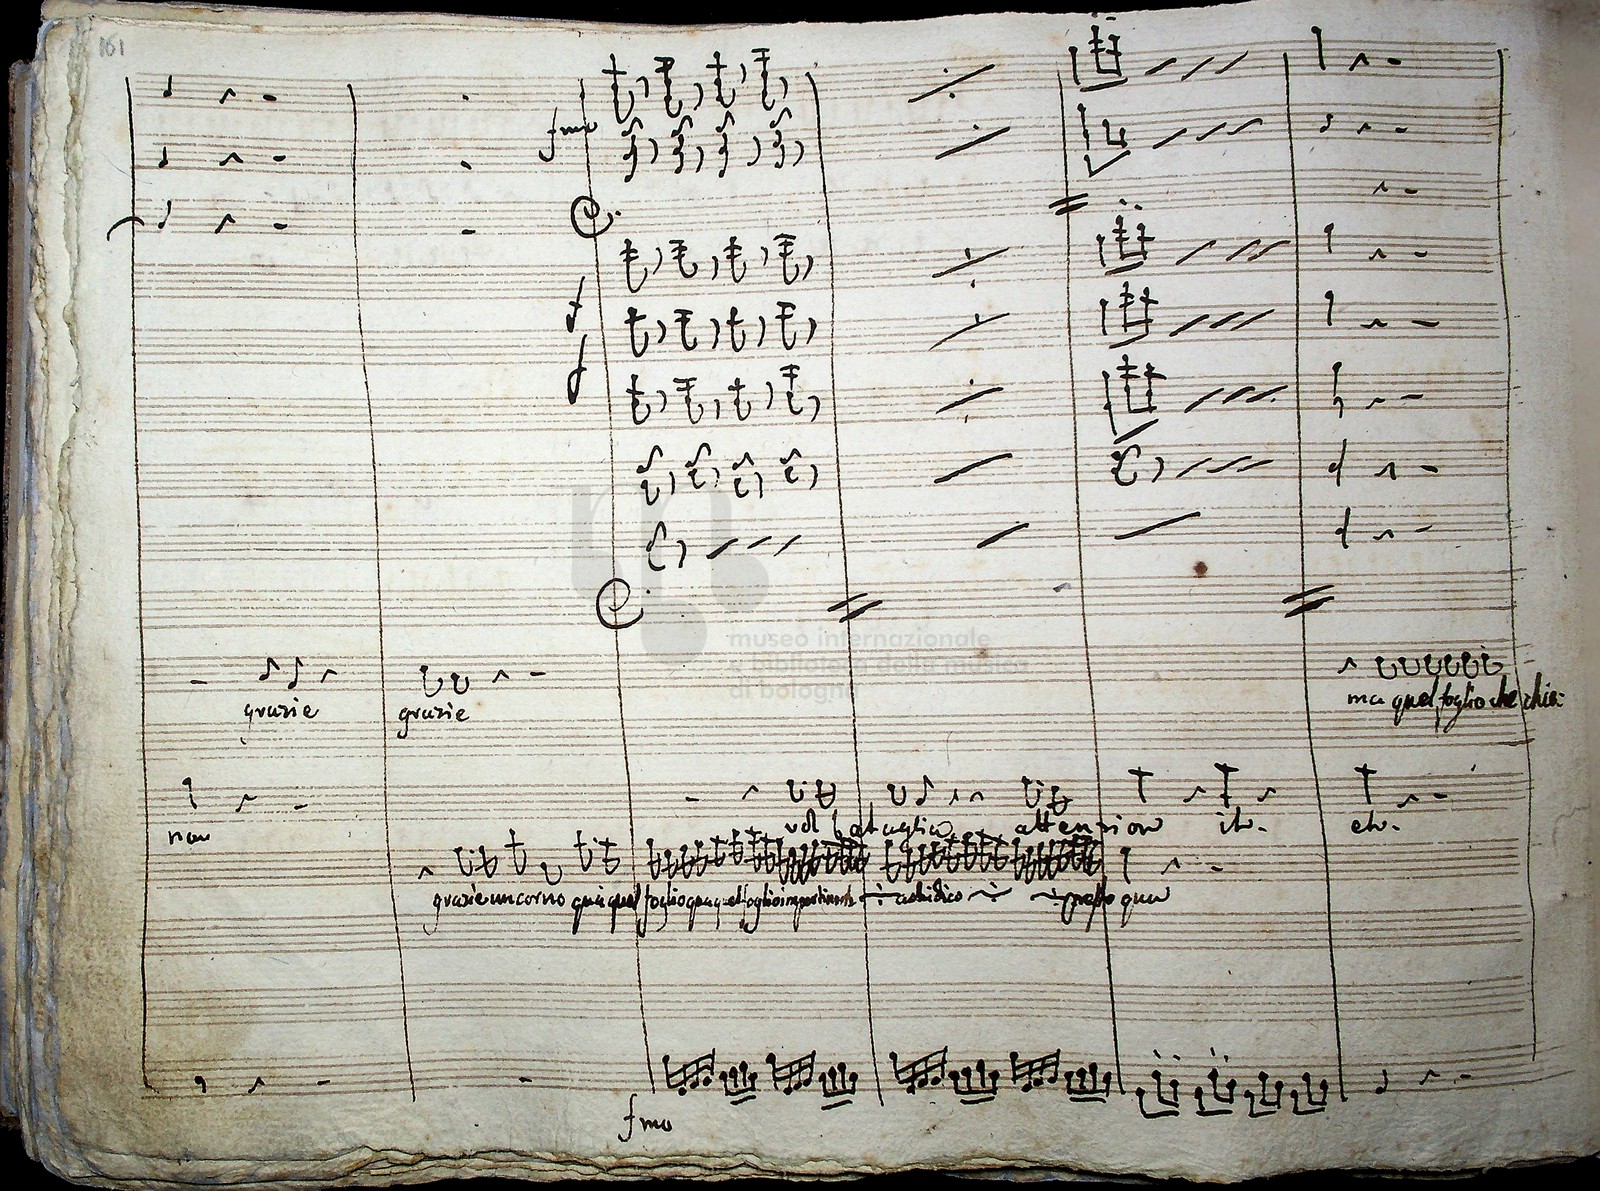 161
fmo
f
f
museo internazionale
e biblioteca della musica
di bologna
grazie grazie
ma quel foglio che chia:
non
attenzion
grazie un corno qui quel foglio qua quel foglio impertinente
presto qua
fmo